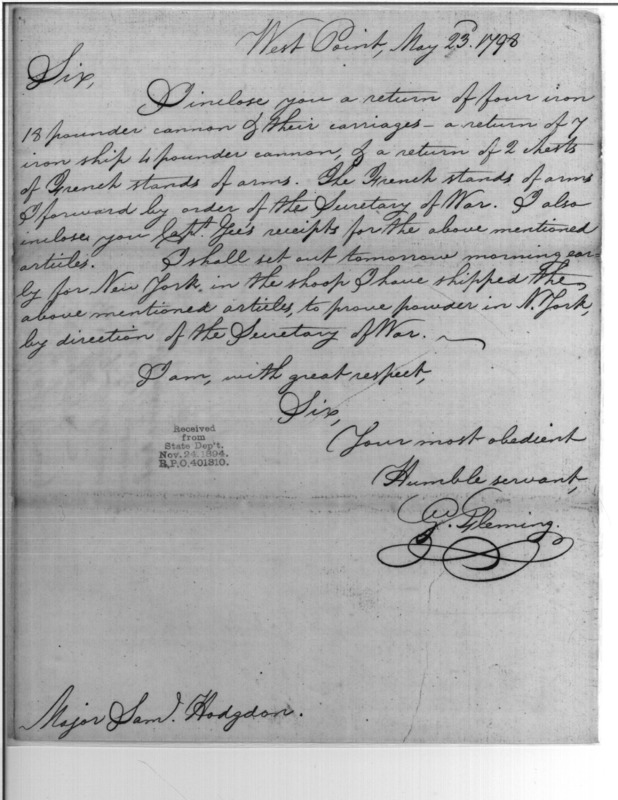 West Point, May 23d. 1798
Sir,
I inclose you a return of four iron
18 pounder cannon & their carriages – a return of 7
iron ship 4 pounder cannon, & a return of 2 chests
of French stands of arms. The French stands of arms
I forward by order of the Secretary of War. I also
inclose you Capt. Gee's receipts for the above mentioned
articles. I shall set out tomorrow morning ear-
ly for New York, in the sloop I have shipped the
above mentioned articles, to prove powder in N. York,
by direction of the Secretary of War. —
I am, with great respect,
Sir,
Your most obedient
Humble servant,
G. Fleming.
Received
from
State Dep't.
Nov. 24. 1894.
R.P.O. 401810.
Major Saml. Hodgdon.